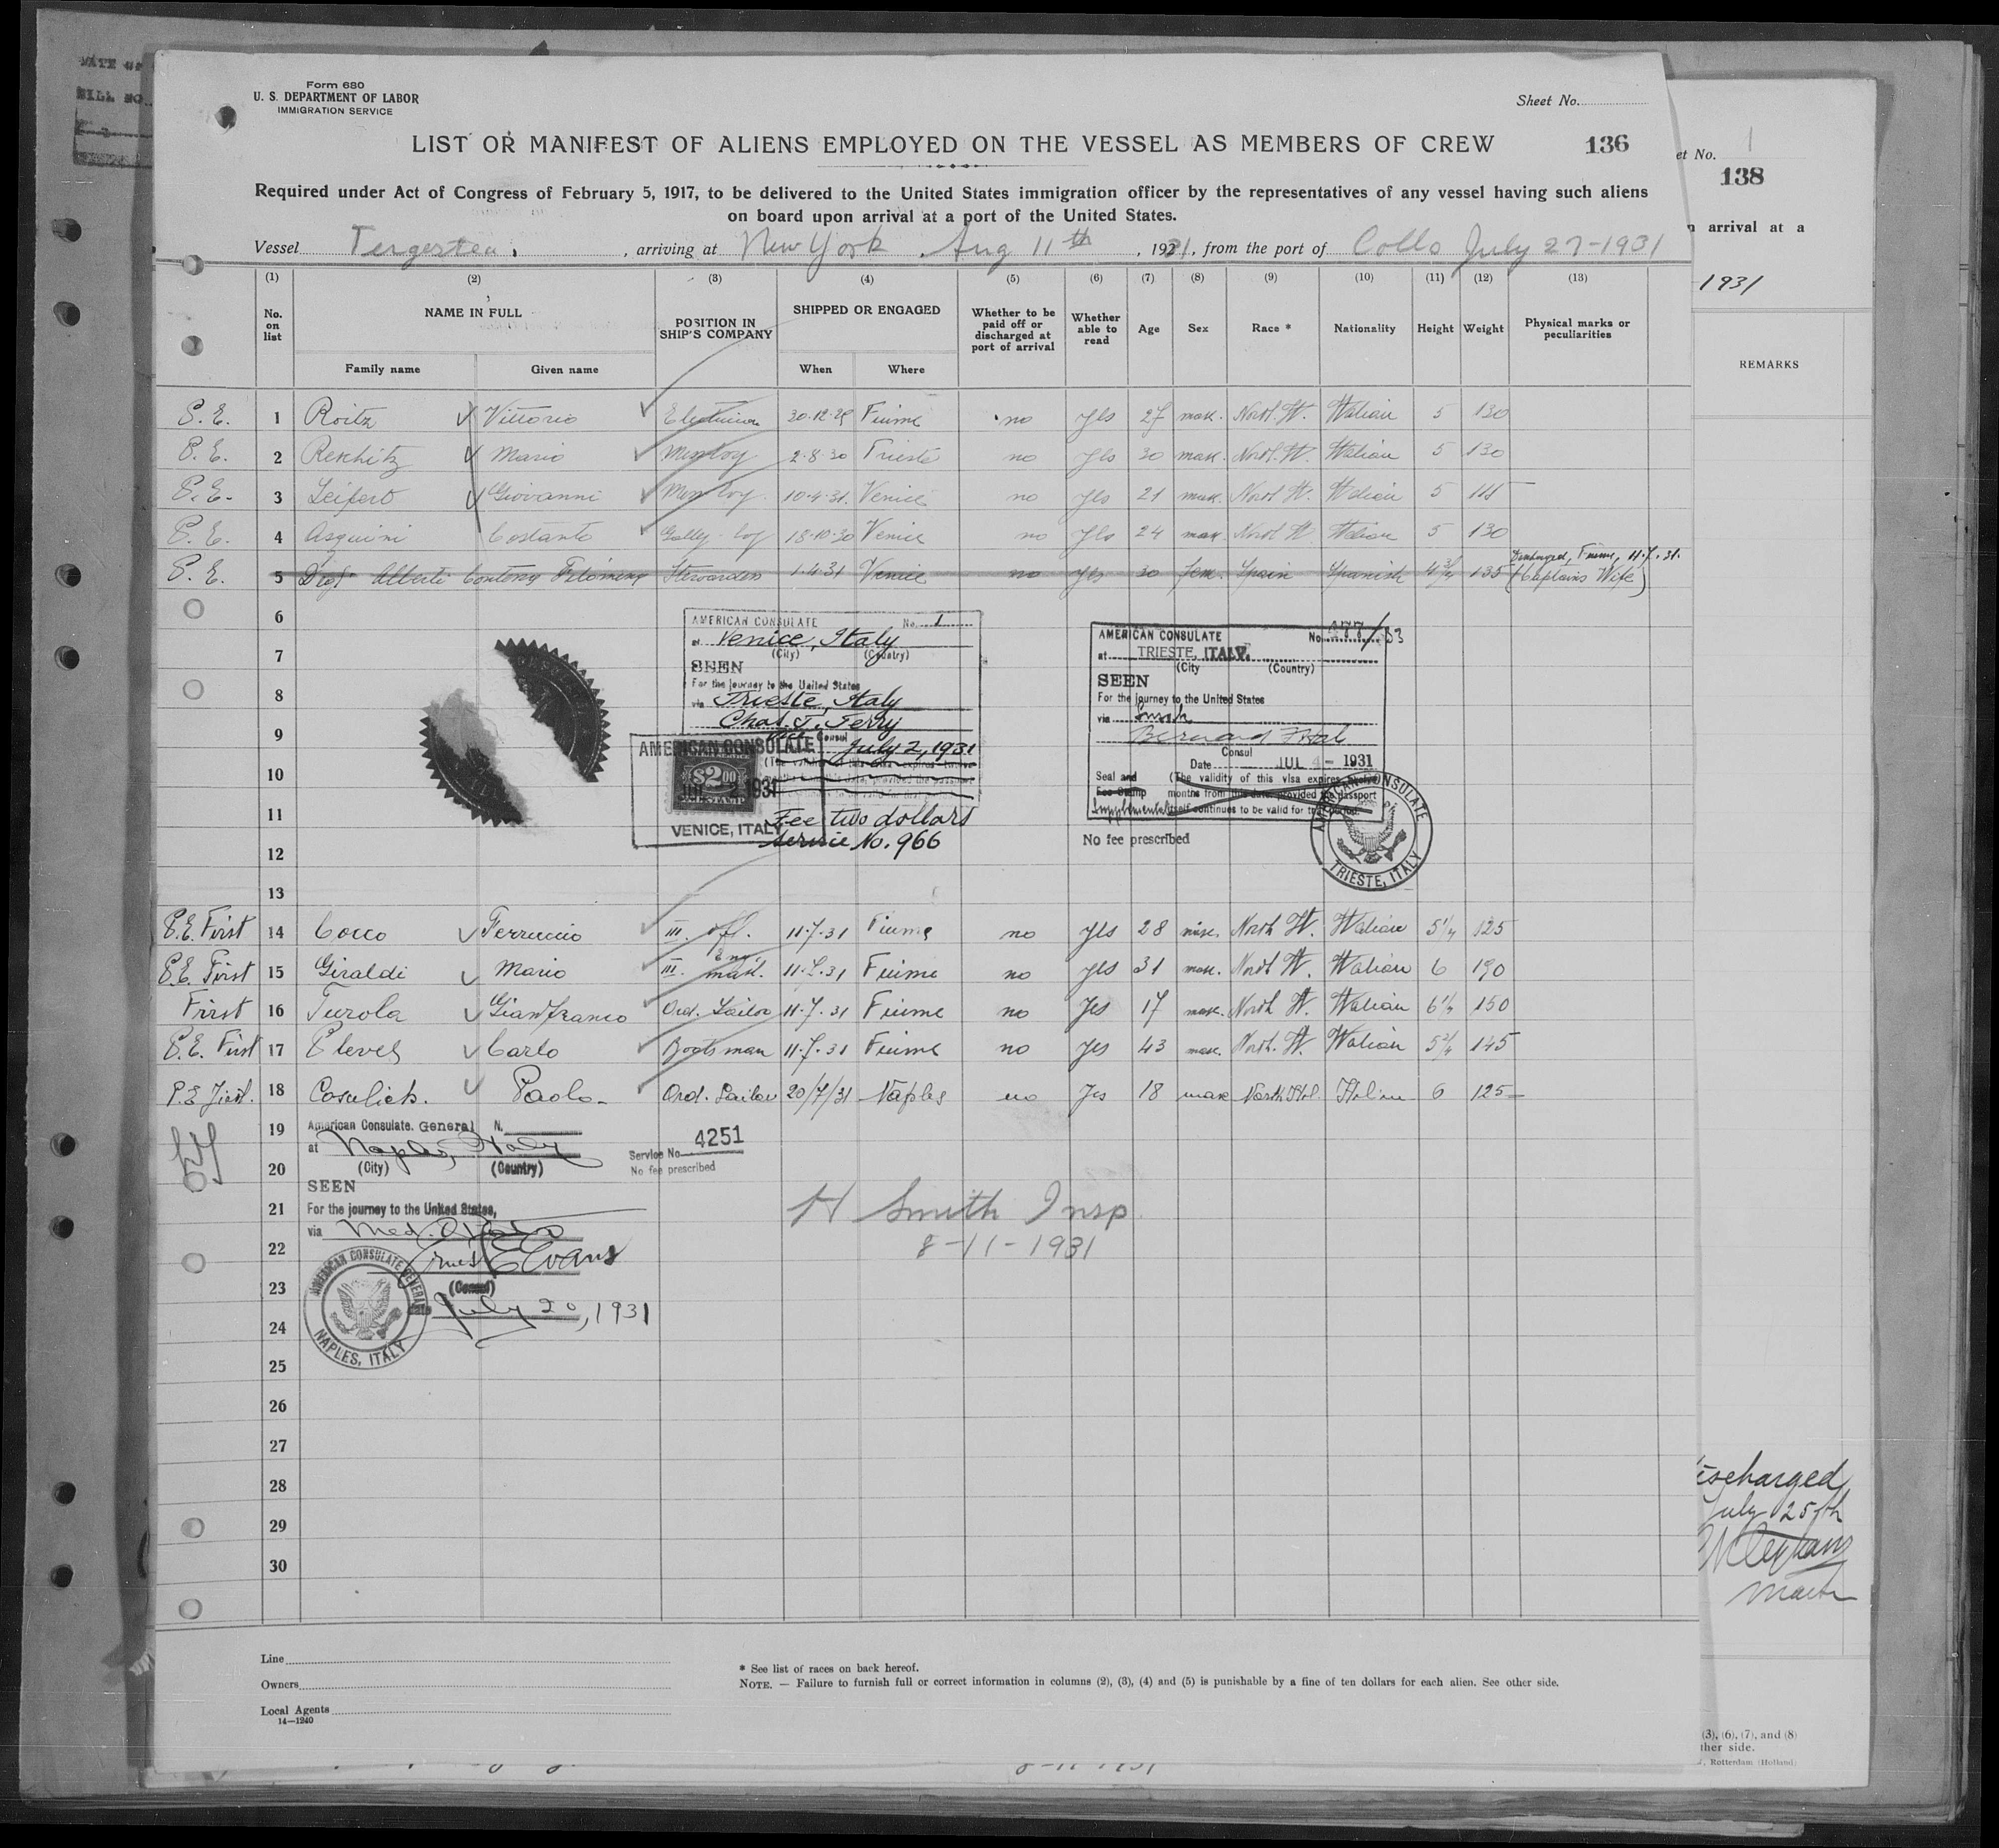 DATE
Form 680
U. S. DEPARTMENT OF LABOR
IMMIGRATION SERVICE
Sheet No.
LIST OR MANIFEST OF ALIENS EMPLOYED ON THE VESSEL AS MEMBERS OF CREW
136
Required under Act of Congress of February 5, 1917, to be delivered to the United States immigration officer by the representatives of any vessel having such aliens
on board upon arrival at a port of the United States.
Vessel Tergestea, arriving at New York Aug 11th, 1931, from the port of Collo July 27-1931
(1) (2) (3) (4) (5) (6) (7) (8) (9) (10) (11) (12) (13)
No. on list NAME IN FULL POSITION IN SHIP'S COMPANY SHIPPED OR ENGAGED Whether to be paid off or discharged at port of arrival Whether able to read Age Sex Race * Nationality Height Weight Physical marks or peculiarities
Family name Given name When Where
P.E. 1 Roitz Vittorio Electrician 30.12.29 Fiume no yes 27 mask. North It. Italian 5 130
P.E. 2 Rekhitz Mario Mess boy 2.8.30 Trieste no yes 30 mask. North It. Italian 5 130
P.E. 3 Leifert Giovanni Mess boy 10.4.31 Venice no yes 21 mask. North It. Italian 5 115
P.E. 4 Asquini Costante Gally boy 18.10.30 Venice no yes 24 mask. North It. Italian 5 130
P.E. 5 Alberti Filomena Stewardess 1.4.31 Venice no yes 30 fem. Spain Spanish 4 3/4 135 Discharged, Fiume, 11.7.31. (Captains Wife)
6
7
8
9
10
11
12
13
AMERICAN CONSULATE No. 1
at Venice, Italy
(City) (Country)
SEEN
For the journey to the United States
via Trieste, Italy
Chas. T. Terry
Vice Consul
July 2, 1931
AMERICAN CONSULATE
$2.00
JUL 2 1931
VENICE, ITALY
Fee two dollars
Service No. 966
AMERICAN CONSULATE No.
at TRIESTE, ITALY.
(City (Country)
SEEN
For the journey to the United States
via
Bernard
Consul
Date JUL 4 - 1931
Seal and Fee Stamp (The validity of this visa expires
months from this date provided the passport
itself continues to be valid for that period.
Supplemental
No fee prescribed
AMERICAN CONSULATE
TRIESTE, ITALY
P.E. First 14 Cocco Ferruccio III. off. 11.7.31 Fiume no yes 28 mask. North It. Italian 5 1/4 125
P.E. First 15 Giraldi Mario III. Eng. 11.7.31 Fiume no yes 31 mask. North It. Italian 6 190
First 16 Turola Gianfranco Ord. Sailor 11.7.31 Fiume no Yes 17 mask. North It. Italian 6 1/4 150
P.E. First 17 Pleves Carlo Boatsman 11.7.31 Fiume no Yes 43 mask. North. It. Italian 5 2/4 145
P.E. First. 18 Cosulich. Paolo Ord. Sailor 20/7/31 Naples no Yes 18 mask North Ital. Italian 6 125
19
20
21
22
23
24
25
26
27
28
29
30
American Consulate. General N.
at Naples, Italy
(City) (Country)
Service No. 4251
No fee prescribed
SEEN
For the journey to the United States,
via
Evans
(Consul)
July 20, 1931
AMERICAN CONSULATE GENERAL
NAPLES, ITALY
H Smith Insp.
8-11-1931
Line
Owners
Local Agents
14—1240
* See list of races on back hereof.
NOTE. — Failure to furnish full or correct information in columns (2), (3), (4) and (5) is punishable by a fine of ten dollars for each alien. See other side.
et No. 1
138
arrival at a
1931
REMARKS
ischarged
July 25th
(3), (6), (7), and (8)
ther side.
Rotterdam (Holland)
8-11 1931